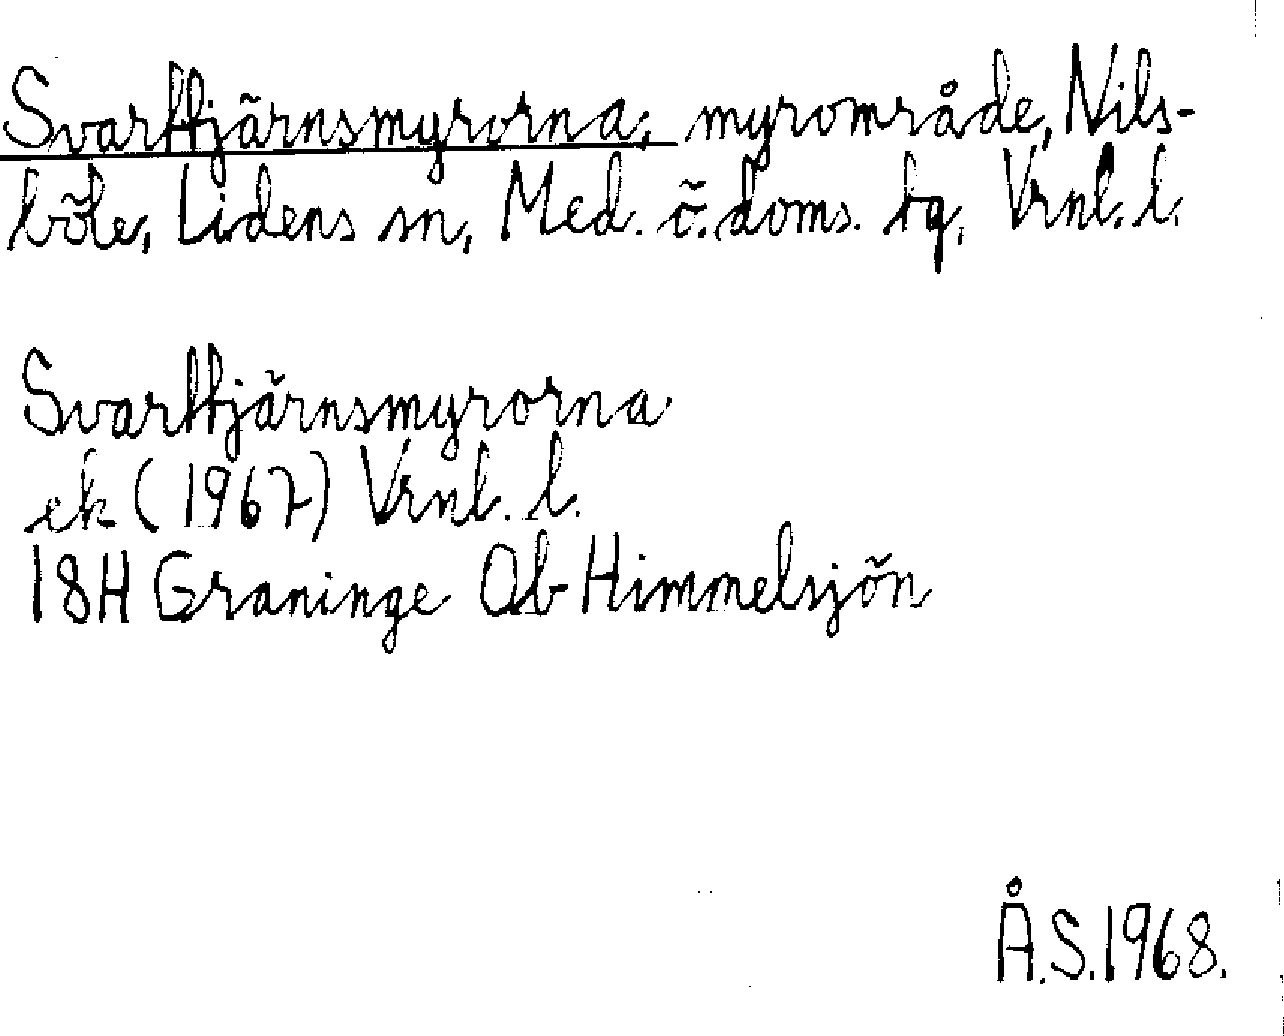 Svarttjärnsmyrorna, myrområde, Nils-
böle, Lidens sn, Med. ö. doms. tg, Vrnl. l.
Svarttjärnsmyrorna
ek (1967) Vrnl. l.
18H Graninge Ob Himmelsjön
Å.S. 1968.